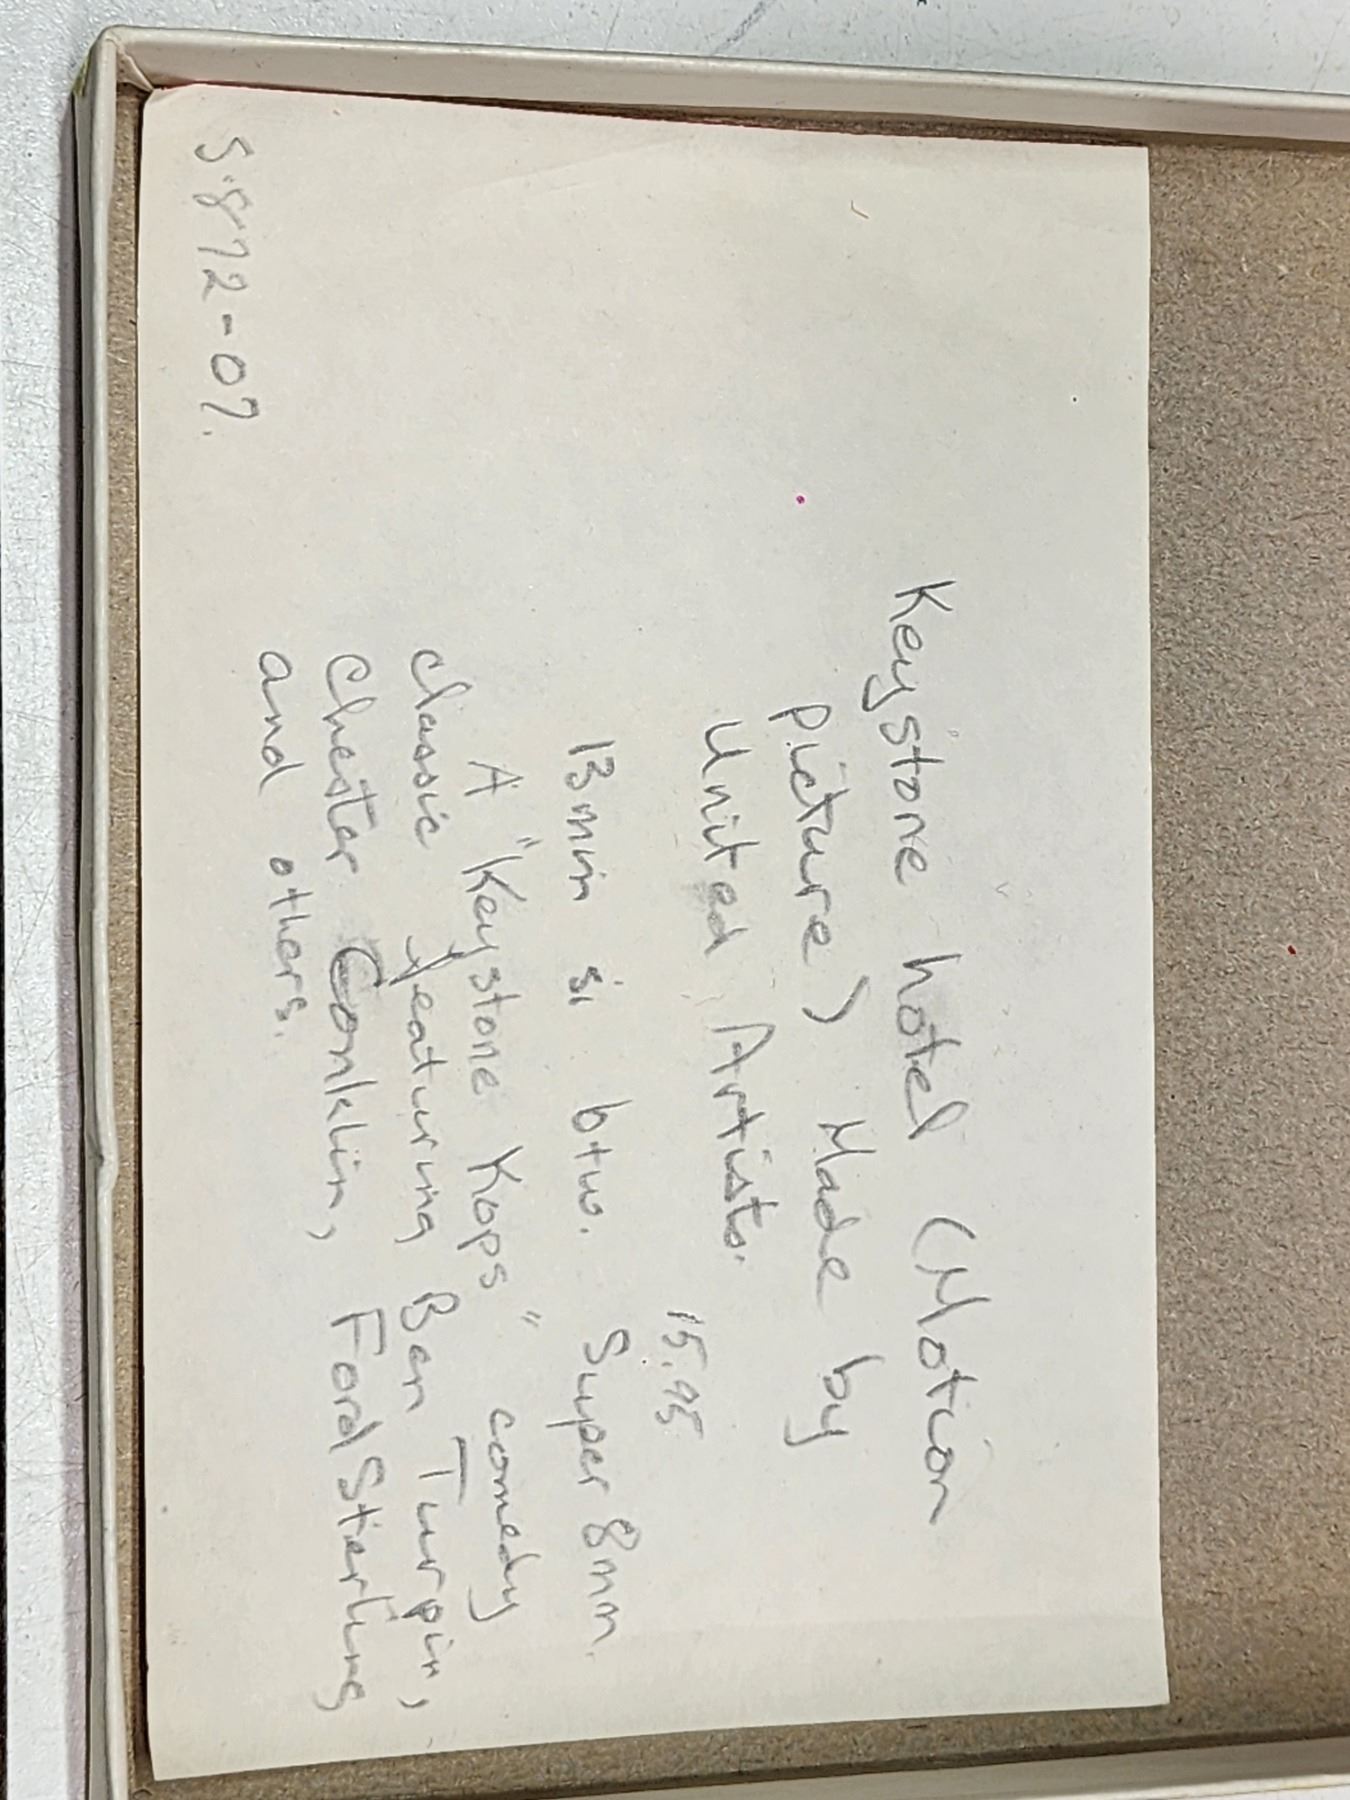 Keystone hotel (Motion
picture) Made by
United Artists.
15.95
13min si btw. Super 8mm.
A "Keystone Kops" comedy
classic featuring Ben Turpin,
Chester Conklin, Ford Sterling
and others.
S-872-07.